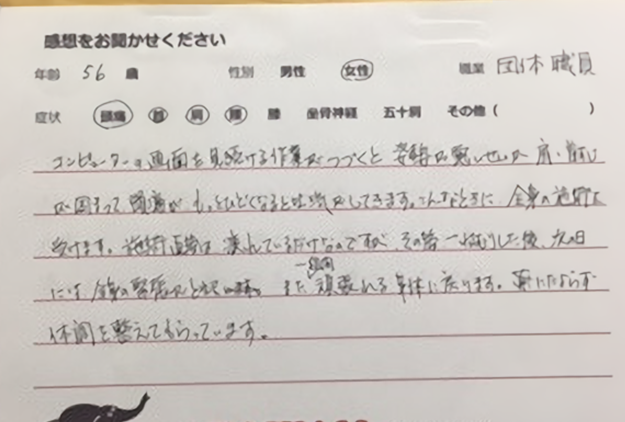 感想をお聞かせください
年齢 56 歳 性別 男性 女性 職業 団体職員
症状 頭痛 首 肩 腰 膝 坐骨神経 五十肩 その他( )
コンピューターの画面を見続ける作業がつづくと 姿勢が悪いせいか 肩・首すじ
が固まって 頭痛が もっとひどくなると吐気がしてきます。こんなときに 全身の施術を
受けます。施術直後は 疲れているだけなのですが、その後 一ねむりした後、次の日
には 全身の緊張がとれ また 一週間 頑張れる身体に戻ります。薬にたよらず
体調を整えてもらっています。